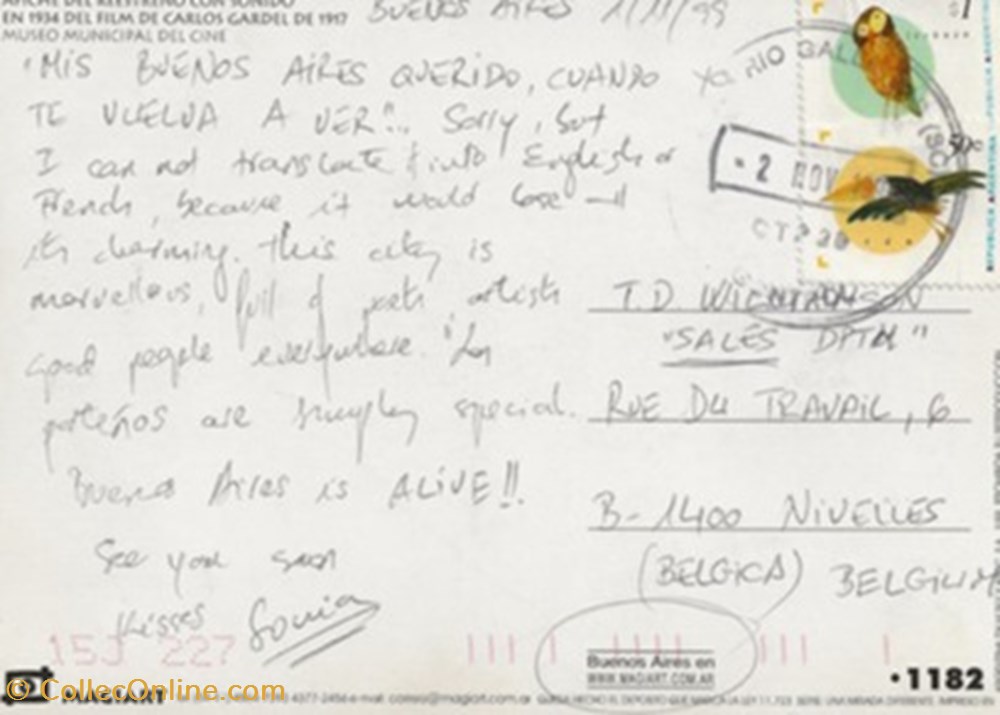 AFICHE DEL REESTRENO CON SONIDO
EN 1934 DEL FILM DE CARLOS GARDEL DE 1917
MUSEO MUNICIPAL DEL CINE
BUENOS AIRES 1/11/99
"MIS BUENOS AIRES QUERIDO, CUANDO YO
TE VUELVA A VER"... Sorry, but
I can not translate it into English or
French, because it would lose all
its charming. This city is
marvellous, full of poets artists
good people everywhere. "Los
porteños are simply special.
Buenos Aires is ALIVE!!
See you soon
Kisses Sonia
$1
RIO GALL
50c
2 NOV
T.D. 
"SALES DPTM"
RUE DU TRAVAIL, 6
B-1400 NIVELLES
(BELGICA) BELGIUM
15J 227
Buenos Aires en
WWW.MAGIART.COM.AR
1182
MAGIART
© CollecOnline.com